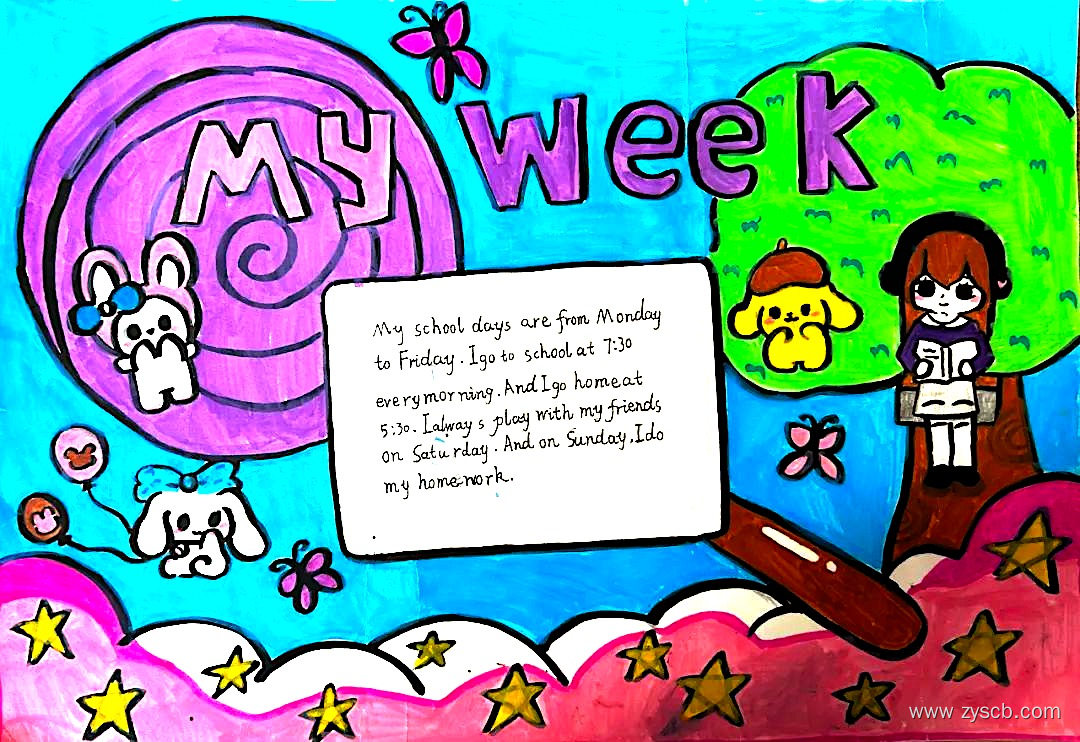 My week
My school days are from Monday
to Friday. I go to school at 7:30
every morning. And I go home at
5:30. I always play with my friends
on Saturday. And on Sunday, I do
my homework.
www.zyscb.com